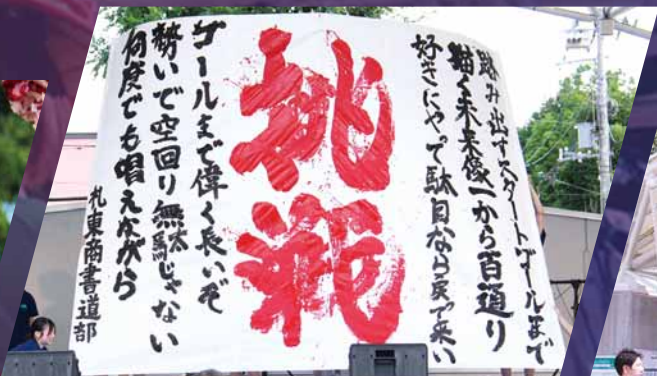 踏み出すスタートゴールまで
描く未来像一から百通り
好きにやって駄目なら戻って来い
挑戦
ゴールまで偉く長いぞ
勢いで空回り無駄じゃない
何度でも唱えながら
札東商書道部